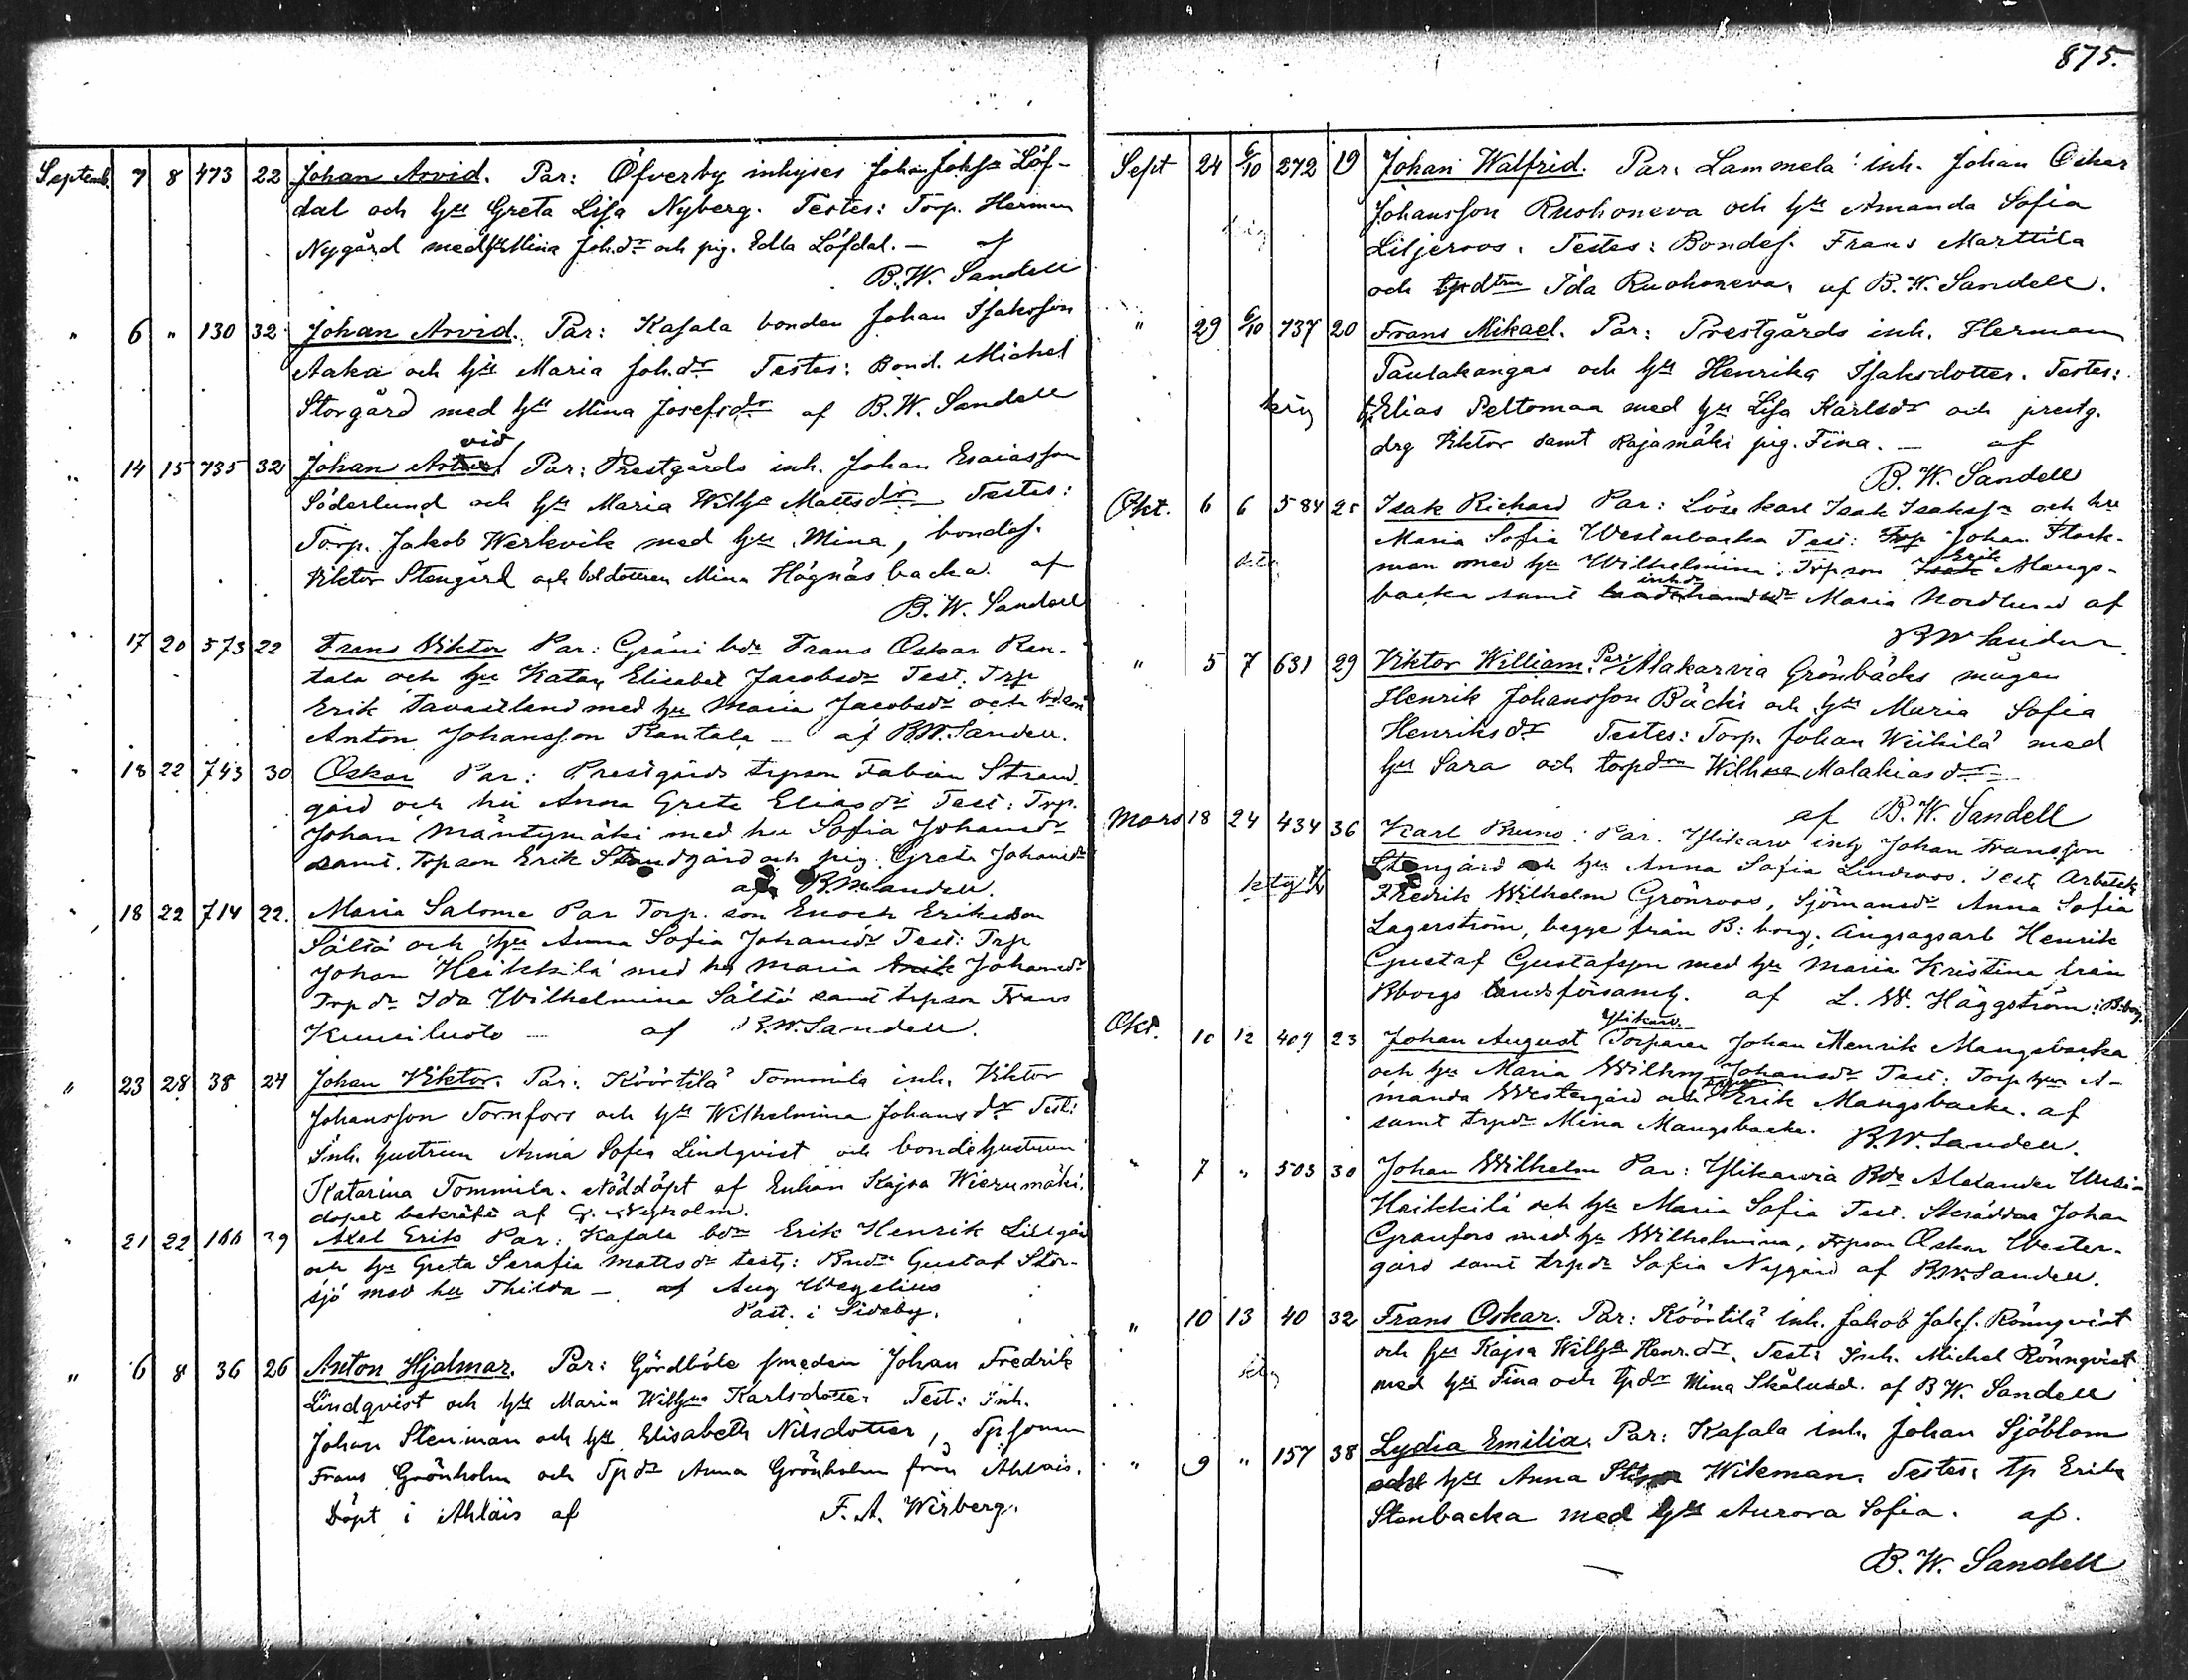 875.
Septemb. 7 8 473 22 Johan Arvid. Par: Öfverby inhyses Johan Johsn Löf-
dal och hu Greta Lisa Nyberg. Testes: Torp. Herman
Nygård med hu Mina Joh.dr och pig. Edla Löfdal. — af
B. W. Sandell
" 6 " 130 32 Johan Arvid. Par: Kasala bonden Johan Isaksson
Aaka och hu Maria Joh.dr Testes: Bond. Michel
Storgård med hu Mina Josefsdr af B. W. Sandell
vid
" 14 15 735 32 Johan Par: Prestgårds inh. Johan Esaiasson
Söderlund och hu Maria Wilhja Mattsdr Testes:
Torp. Jakob Werkvik med hu Mina, bondes.
Viktor Stengård och bdotteren Mina Högnäsbacka af
B. W. Sandell
" 17 20 573 22 Frans Viktor Par: Gräni bdn Frans Oskar Ran-
tala och hu Katar. Elisabet Jacobsdr Test: Trp
Erik Tavastland med hu Maria Jacobsdr och bdson
Anton Johansson Rantala — af B.W. Sandell.
" 18 22 743 30 Oskar Par: Prestgårds trpson Fabian Strand
gård och hu Anna Greta Eliasdr Test: Trp.
Johan Mäntymäki med hu Sofia Johansdr
samt. Trpson Erik Strandgård och pig. Greta Johansdr
af B.W. Sandell.
" 18 22 714 22. Maria Salome Par Torp. son Enoch Eriksson
Sältö och hu Anna Sofia Johansdr Test: Trp
Johan Heikkilä med hu Maria Johansdr
Trpdr Ida Wilhelmina Sältö samt trpson Frans
Kuusiluoto — af B.W. Sandell.
" 23 28 38 24 Johan Viktor. Par: Köörtilä Tommila inh. Viktor
Johansson Tornfors och hu Wilhelmina Johansdr Test:
Inh. hustrun Anna Sofia Lindqvist och bondehustrun
Katarina Tommila. Nöddöpt af Enkan Kajsa Wierumäki.
dopet bekräft af G. Nyholm.
" 21 22 166 29 Axel Erik Par: Kasala bdn Erik Henrik Lillgård
och hu Greta Serafia Mattsdr test: Bndn Gustaf Stor-
sjö med hu Thilda — af Aug Wegelius
Past. i Sideby.
" 6 8 36 26 Anton Hjalmar. Par: Gårdböle smeden Johan Fredrik
Lindqvist och hu Maria Wilhma Karlsdotter Test: Inh.
Johan Stenman och hu Elisabeth Nilsdotter, Tpsonen
Frans Grönholm och Tpdr Anna Grönholm från Ahlais.
Döpt i Ahlais af F. A. Wirberg.
Sept 24 6/10 272 19 Johan Walfrid. Par: Lammela inh. Johan Oskar
Johansson Ruohoneva och hu Amanda Sofia
Liljeroos. Testes: Bondes. Frans Marttila
och tpdtrn Ida Ruohoneva. af B. W. Sandell.
" 29 6/10 737 20 Frans Mikael. Par: Prestgårds inh. Herman
Paulakangas och hu Henrika Isaksdotter. Testes:
Elias Peltomaa med hu Lisa Karlsdr och prestg.
drg Viktor samt Rajamäki pig. Fina. — af
B. W. Sandell
Okt. 6 6 584 25 Isak Richard Par: Lösekarl Isak Isakssn och hu
Maria Sofia Westerbacka Test: Trp Johan Stark-
man med hu Wilhelmina. Trpson Erik Mangs-
backa samt inhdr Maria Nordlund af
B W Sandell
" 5 7 631 29 Viktor William. Par: Alakarvia Grönbäcks mågen
Henrik Johansson Bäcki och hu Maria Sofia
Henriksdr Testes: Torp. Johan Wiikilä med
hu Sara och torpdrn Wilhma Malakiasdr
af B. W. Sandell
Mars 18 24 434 36 Karl Bruno: Par. Yttikarv inh Johan Fransson
Stengård och hu Anna Sofia Lindroos. Test Arbetsk
Fredrik Wilhelm Grönroos, Sjömansdr Anna Sofia
Lagerström, begge från B:borg. Ångsågsarb Henrik
Gustaf Gustafsson med hu Maria Kristina från
Bborgs landsförsaml. af L. W. Häggström i B:borg.
Okt. 10 12 409 23 Johan August Torparen Johan Henrik Mangsbacka
och hu Maria Wilhm Johansdr Test: Torp hu A-
manda Westergård och Erik Mangsbacka. af
samt trpdr Mina Mangsbacka. B. W. Sandell.
" 7 " 503 30 Johan Wilhelm Par: Ylikarvia Bdn Alexander Uusi-
Heikkilä och hu Maria Sofia Test. Skräddar Johan
Granfors med hu Wilhelmina, trpson Oskar Wester-
gård samt trpdr Sofia Nygård af B.W. Sandell.
" 10 13 40 32 Frans Oskar. Par: Köörtilä inh. Jakob Jaks. Rönnqvist
och hu Kajsa Wilhja Henr.dr. Test: Inh. Michel Rönnqvist
med hu Fina och tpdr Mina Skålund. af B W. Sandell
" 9 " 157 38 Lydia Emilia. Par: Kasala inh. Johan Sjöblom
och hu Anna Wikman. Testes: tp Erik
Stenbacka med hu Aurora Sofia. af.
B. W. Sandell